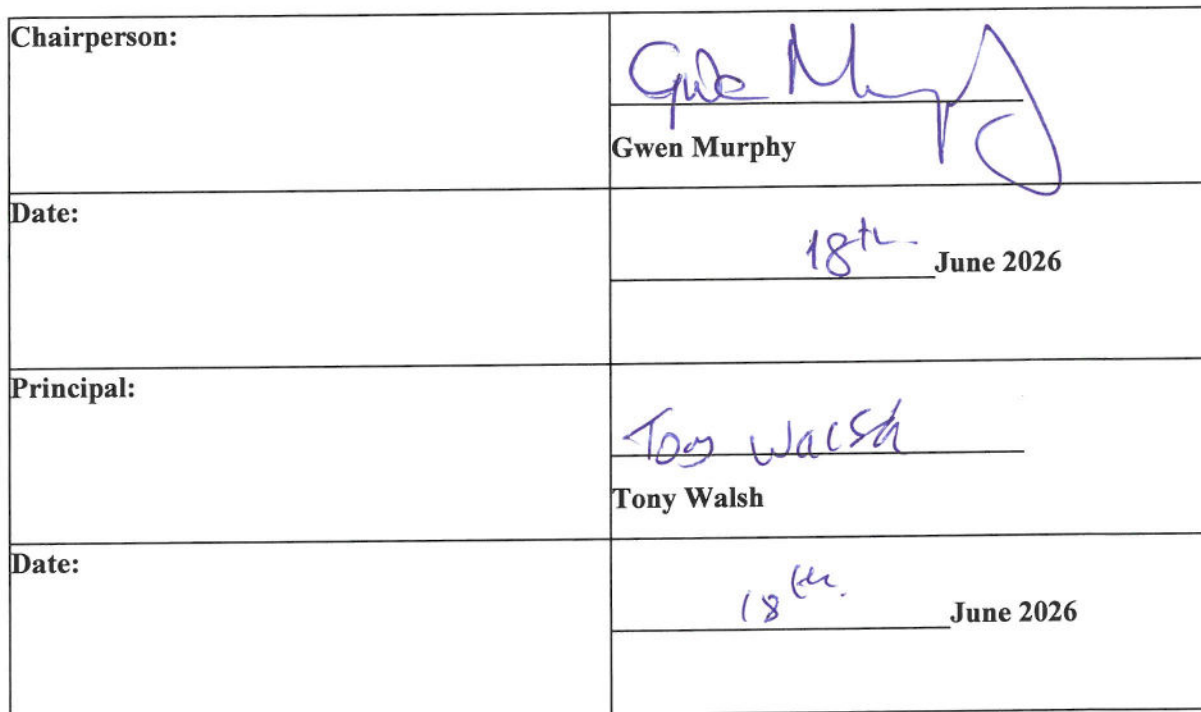 Chairperson:
Gwen Murphy
Gwen Murphy
Date:
18th June 2026
Principal:
Tony Walsh
Tony Walsh
Date:
18th June 2026